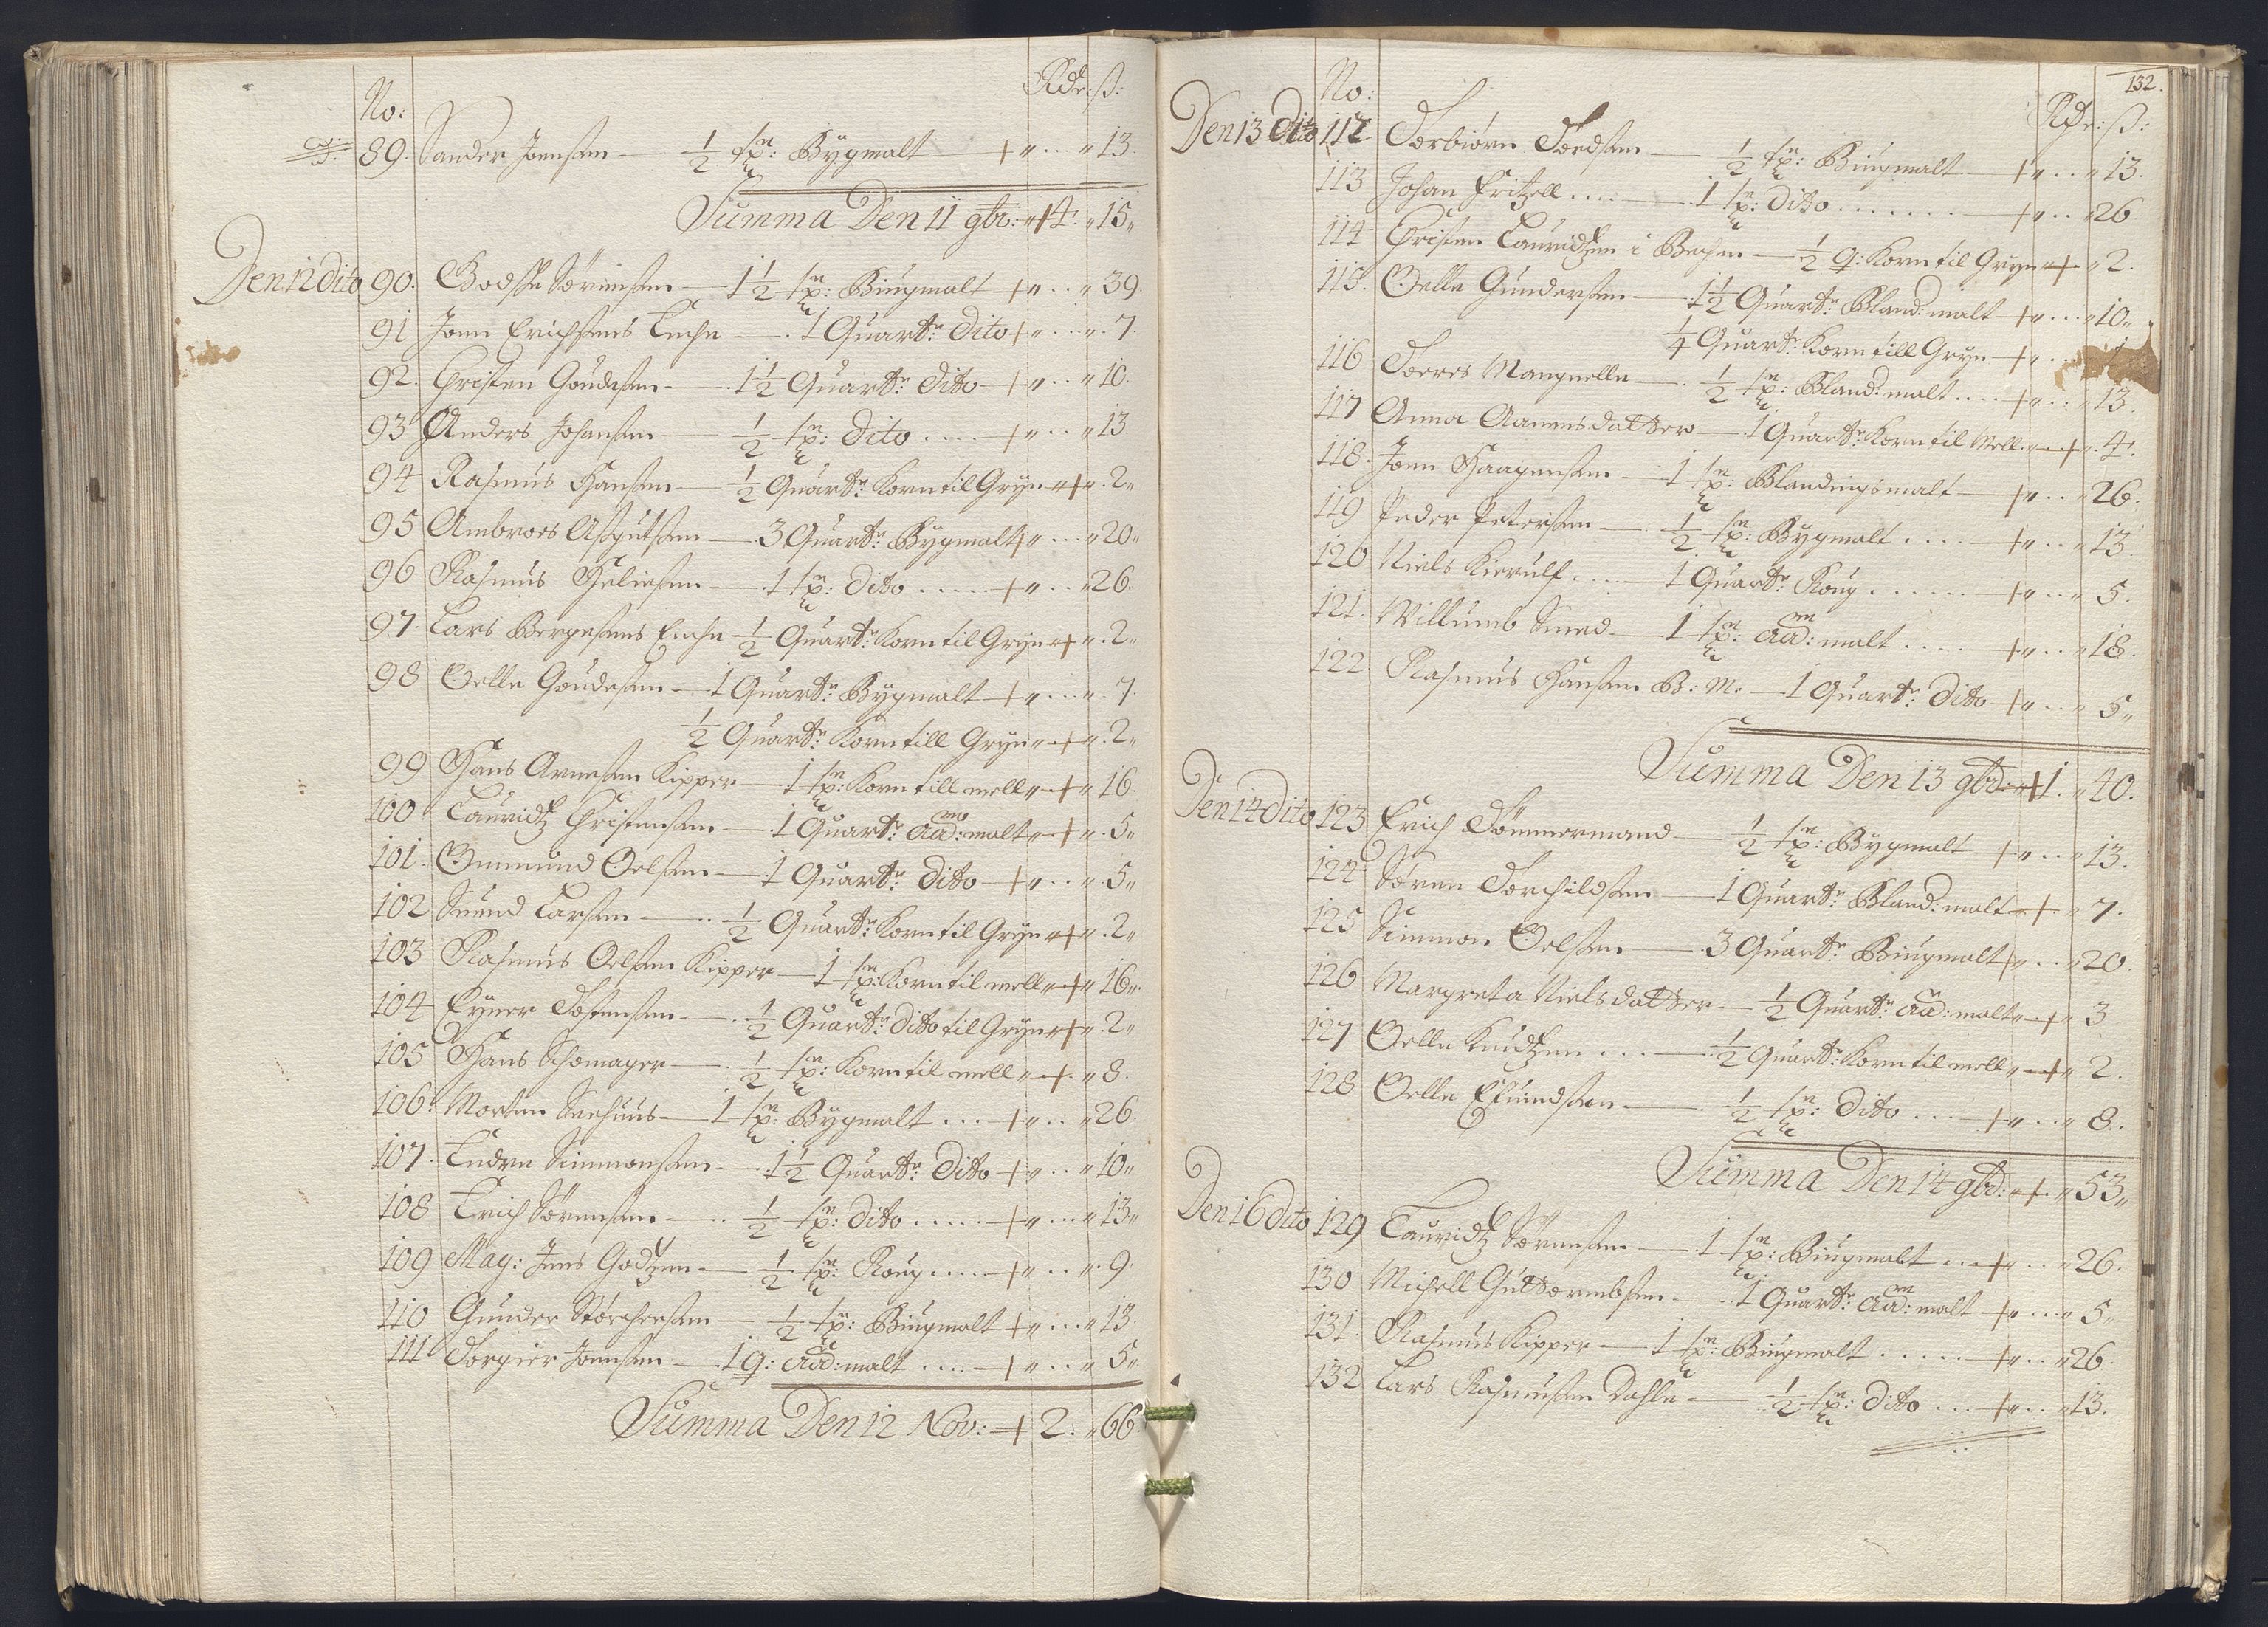 No: Rdr: ß:
89. Sander Joensen — ½ tp: Bygmalt + „ . . . „ 13.
Summa Den 11 9br: „ + 4: „ 15 „
Den 12 dito 90. Sørensen — 1½ tp: Biugmalt + „ . . „ 39.
91 Joen Erichsens Enche — . 1 Quart: dito + „ . . . „ . 7.
92. Christen Goudesen — . 1½ Quart: dito + „ . . „ 10.
93 Anders Johansen — ½ tp: dito . . . . + „ . . „ 13
94 Rasmus Hansen — ½ Quart: Korn til Gryn „ + „ . 2 „
95 Ambroes Asgutsen — . 3 Quart: Bygmalt + „ . . . „ 20 „
96 Rasmus Heliesen — . 1 tp: dito . . . . . + „ . . „ 26.
97. Lars Bergesens Enche — ½ Quart: Korn til Gryn „ + „ . 2 „
98 Oelle Goudesen — 1 Quart: Bygmalt + „ . . . „ . 7.
½ Quart: Korn till Gryn „ + „ . 2 „
99 Hans Arnesen Kipper — 1 tp: Korn till mell „ + „ 16.
100 Lauridtz Christensen — . 1 Quart: aad: malt „ + „ . 5 „
101. Ommund Oelsen — . 1 Quart: dito — + „ . . „ . 5 „
102 Suend Larsen — . . ½ Quart: Korn til Gryn „ + „ . 2 „
103 Rasmus Oelsen Kipper — 1 tp: Korn til mell „ + „ 16 „
104 Eyner Tostensen — . ½ Quart: dito til Gryn „ + „ . 2 „
105 Hans Schomager — . ½ tp: Korn til mell „ + . „ 8.
106. Morten Seehuus — 1 tp: Bygmalt . . . + „ . . „ 26.
107. Endre Simmonsen — . 1½ Quart: dito + „ . . „ 10 „
108 Erich Sørensen — . ½ tp: dito . . . . . + „ . . . „ 13 „
109 Mag: Jens Godtzen — ½ tp: Roug . . . . . + „ . . „ . 9.
110 Gunder Størchersen — ½ tp: Biugmalt + „ . . . „ 13.
111 Torgier Joensen — . 1 q: aad: malt . . . . + „ . . . „ 5 „
Summa Den 12 Nov: + 2. „ 66
132.
No: Rdr: ß:
Den 13 dito 112 Torbiørn Tordsen — ½ tp: Biugmalt + „ . . „ 13.
113 Johan Fritzell . . . . — . 1 tp: dito . . . . . . . + „ . . „ 26.
114 Christen Lauridtzen i Bechen — ½ q: Korn til Gryn „ + „ 2.
115. Oelle Gundersen — . 1½ Quart: Bland: malt + „ . . . „ 10 „
¼ Quart: Korn till Gryn + „ . . . 1
116 Torres Mangnelle — . ½ tp: Bland: malt . . . . + „ . . „ 13.
117 Anna Aanensdatter — . 1 Quart: Korn til Mell „ + „ . 4.
118. Joen Haagensen — 1 tp: Blandingsmalt + „ . . „ 26.
119 Peder Petersen — . ½ tp: Bygmalt . . . . + „ . . „ 13.
120 Niels Kierulf . . . . — 1 Quart: Roug . . . . . . + „ . . „ 5.
121. Willumb Smed — . 1 tp: aad: malt . . . . + „ . . „ 18.
122 Rasmus Hansen B: M: — 1 Quart: dito + „ . . „ 5 „
Summa Den 13 9br: „ + 1. „ 40.
Den 14 dito 123 Erich Tømmermand — ½ tp: Bygmalt + „ . . „ 13.
124 Søren Torchildsen — . 1 Quart: Bland: malt + . „ 7.
125 Simmon Oelsen — . 3 Quart: Biugmalt + „ . . „ 20.
126 Margreta Nielsdatter — ½ Quart: aad: malt „ + „ 3
127 Oelle Knudtzen . . . — . ½ Quart: Korn til mell „ + „ 2.
128 Oelle — . ½ tp: dito . . . . + „ . . „ 8.
Summa Den 14 9br: „ + . „ 53 „
Den 16 dito 129 Lauridtz Sørensen — . 1 tp: Biugmalt . . . + „ . . „ 26.
130 Michell Guttormbsen — . 1 Quart: aad: malt + „ . . . „ 5 „
131. Rasmus Kipper — 1 tp: Biugmalt . . . . . + „ . . „ 26.
132 Lars Rasmusen Dahle — ½ tp: dito . . . + „ . . „ 13.